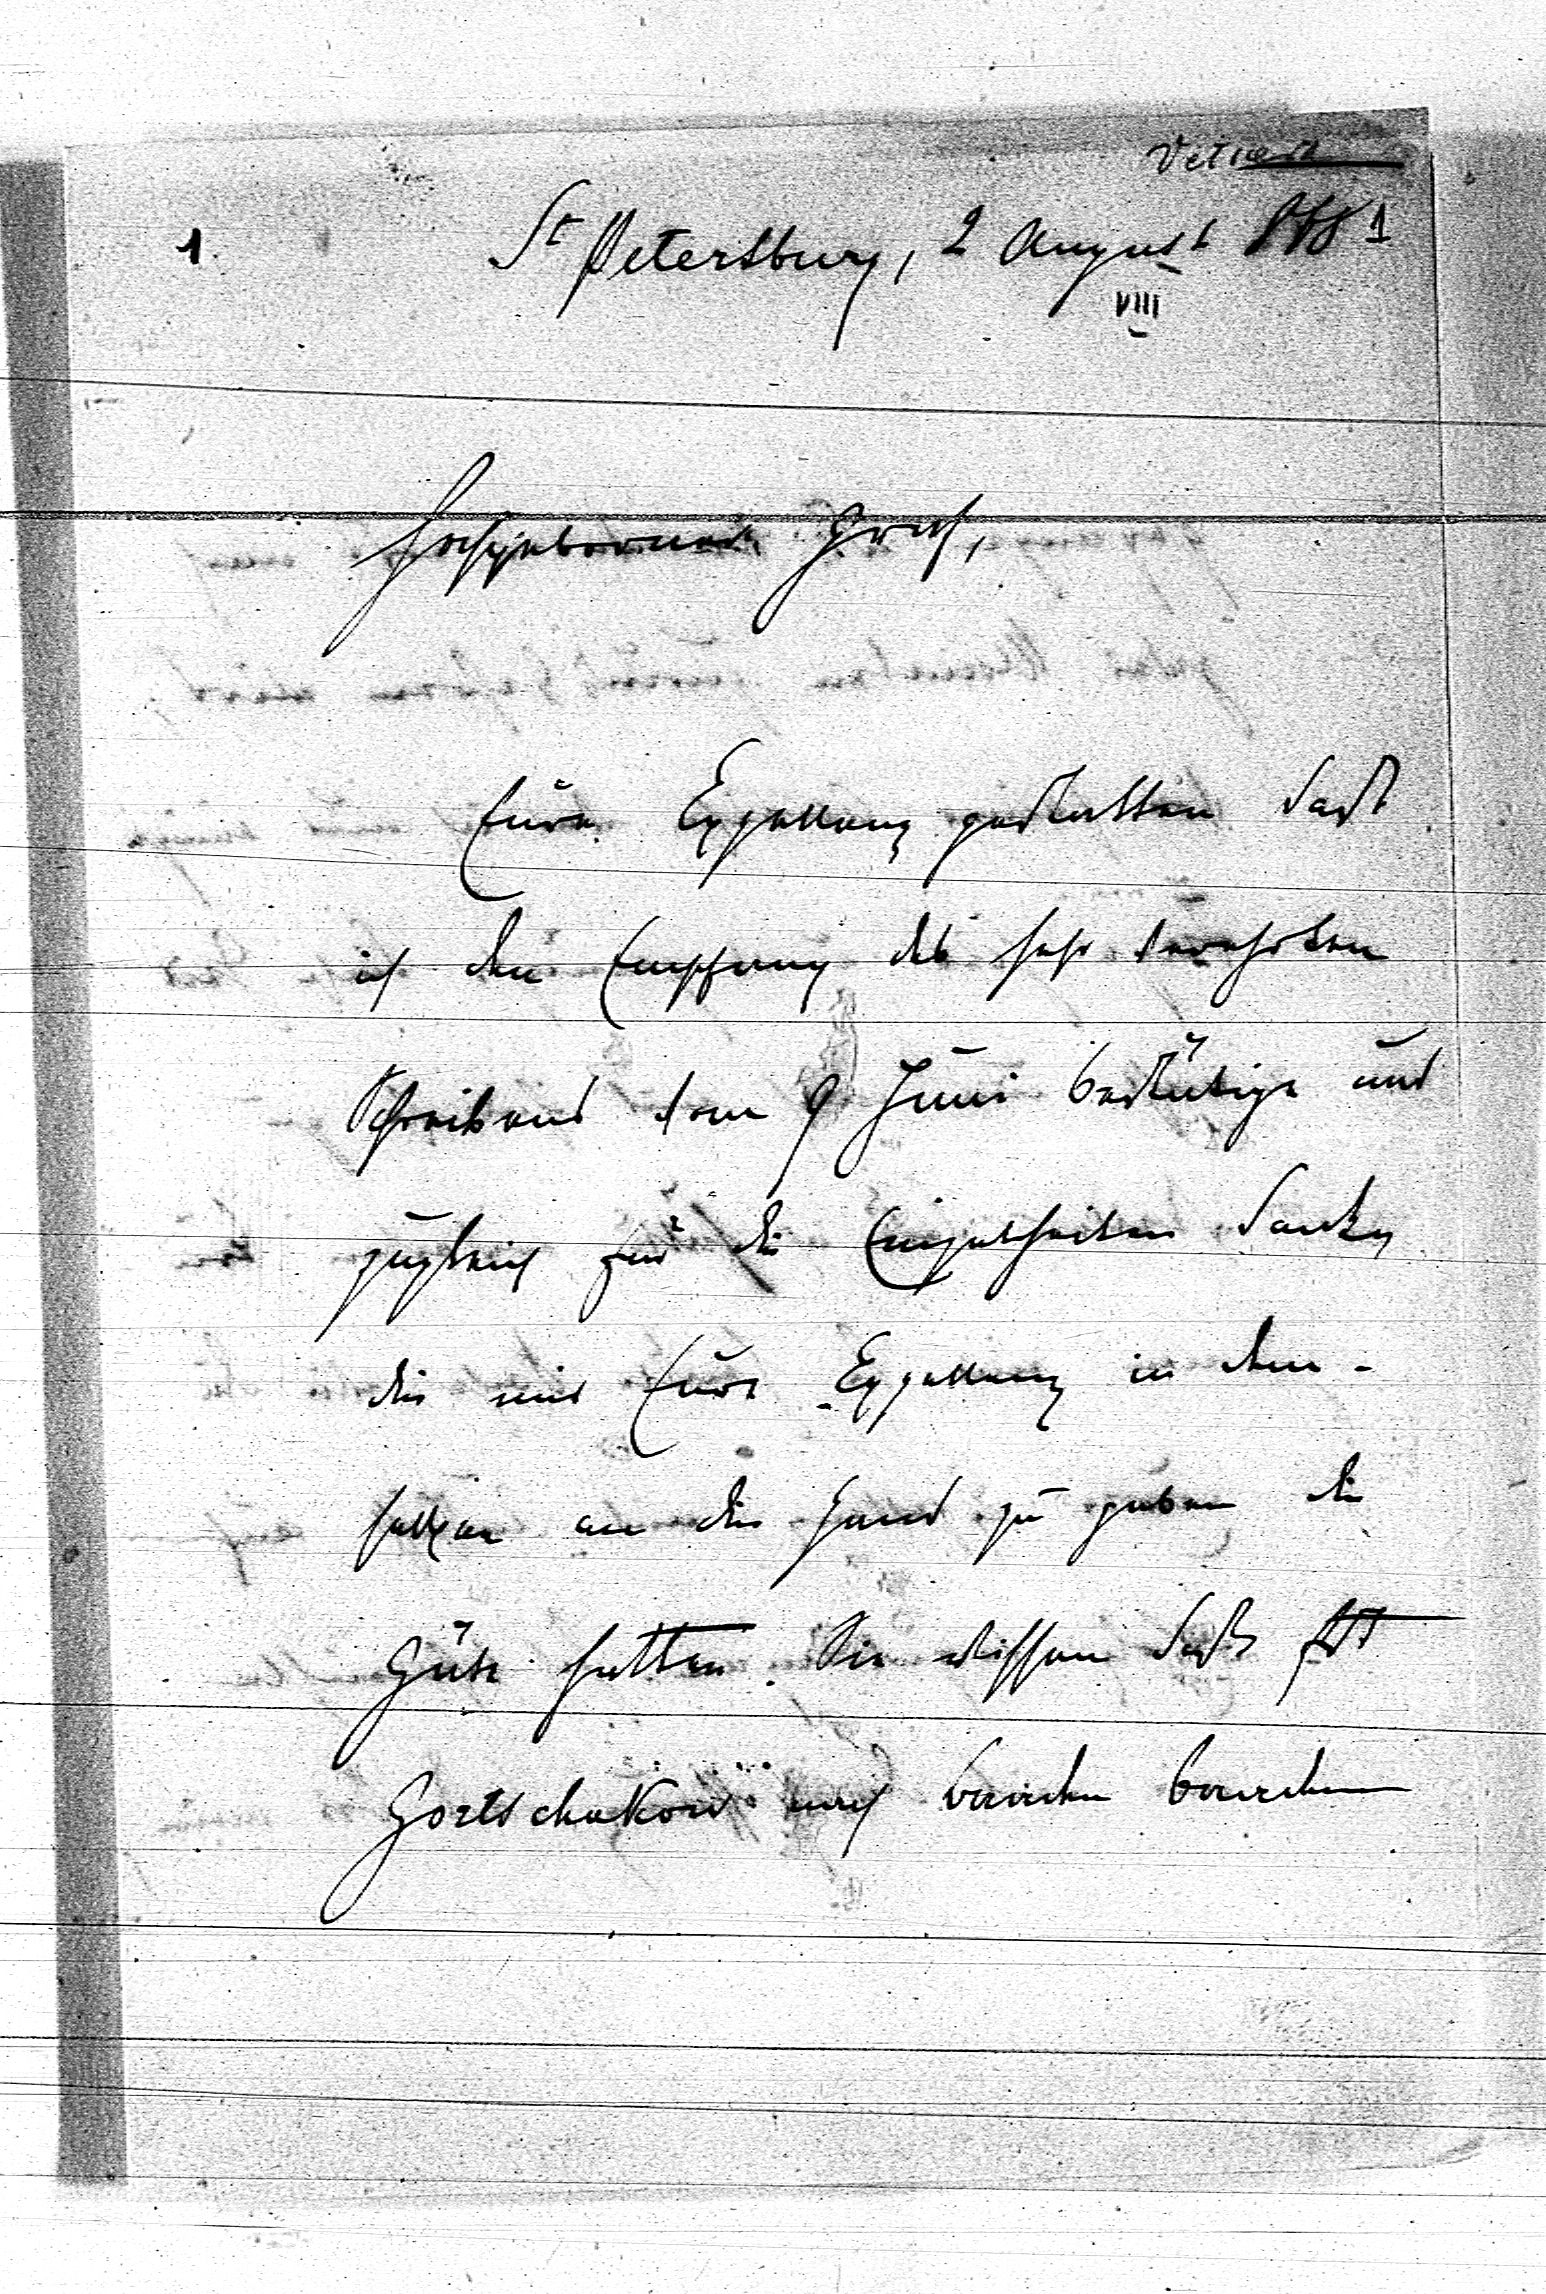 1.
St Petersburg, 2 August 1881
VIII
Hochgeborener Graf,
Eure Exzellenz gestatten daß
ich den Empfang des sehr verehrten
Schreibens vom 9 Juni bestätige und
zugleich für die
die mir Eure Exzellenz in dem-
selben an die Hand zu geben die
Güte hatten. Sie wissen daß Fst
Gortschakow nach Baden